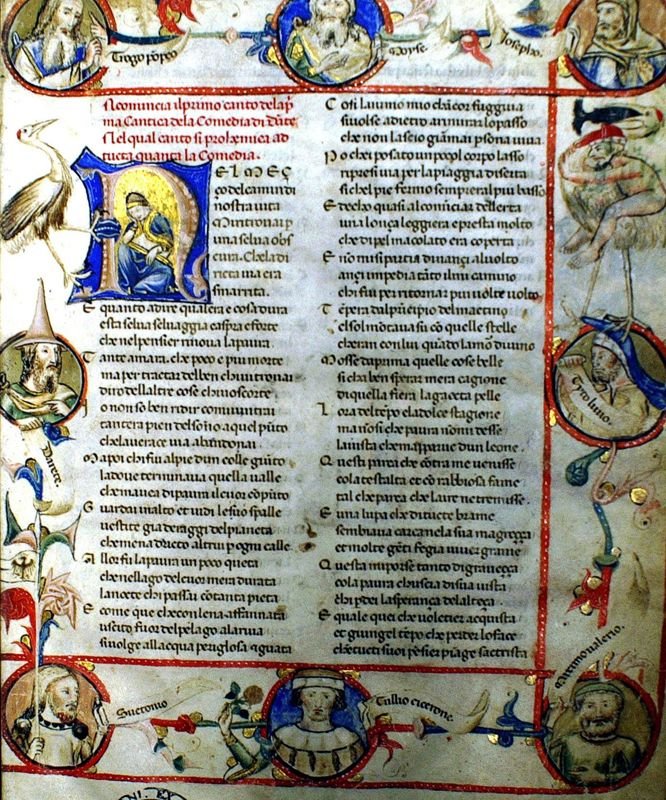 Trogo popeo
Moyse
Josepho
Icomincia il primo canto dela pi
ma Cantica dela Comedia di Dāte
Nel qual cāto si prohemica ad
tucta quanta la Comedia.
NEL MEÇ
ço del camin di
nostra uita
Mi ritrouai p
una selua obs
cura. Che la di
ricta uia era
smarrita.
E quanto a dire qual era e cosa dura
esta selua seluaggia e aspra e forte
che nel pensier rinoua la paura.
Tant e amara. che poco e piu morte
ma per tractar del ben ch iui trouai
diro dell altre cose ch i uo scorte.
Io non so ben ridir com i u intrai
tant era pien di sōno a quel pūto
che la uerace uia abandonai.
Ma poi ch i fui al pie d un colle giūto
la doue terminaua quella ualle
che m auea di paura il cuor cōpūto
Guardai in alto et uidi le sue spalle
uestite gia de raggi del pianeta
che mena dricto altrui p ogni calle
Allor fu la paura un poco queta
che nel lago del cuor m era durata
la nocte ch i passai cō tanta pieta
E come quei che con lena affannata
uscito fuor del pelago a la riua
si uolge all acqua perigliosa e guata
Cosi l animo mio ch ancor fuggiua
si uolse adietro a rimirar lo passo
che non lascio giāmai p̄sona uiua
Po ch ei posato un poco il corpo lasso
ripresi uia per la piaggia diserta
si che l pie fermo sempre era l piu basso
Et eccho quasi al cominciar dell erta
una lonça leggiera e presta molto
che di pel macolato era coperta
E no mi si partia dinançi al uolto
ançi impedia tāto il mi camino
ch i fui per ritornar piu uolte uolto
Temp era dal pncipio del mactino
e l sol montaua su cō quelle stelle
ch eran con lui quādo l amor diuino
Mosse da prima quelle cose belle
si ch a ben sperar m era cagione
di quella fiera la gaeta pelle
L ora del tēpo e la dolce stagione
ma nō si che paura nō mi desse
la uista che m apparue d un leone.
Questi parea che cōtra me uenisse
co la test alta et cō rabbiosa fame
si che parea che l aere ne tremisse.
E una lupa che di tucte brame
sembiaua carca ne la sua magreçça
et molte gēti fe gia uiuer grame
Questa mi porse tanto di graueçça
co la paura ch uscia di sua uista
ch i pdei la sperança de l alteça.
E quale quei che uolētier acquista
et giungne l tēpo che perder lo face
che n tucti suoi pēsier piāge e s actrista
Darete
Tyto liuio.
Suetonio
Tullio cicerone.
Maximo ualerio.
VI. EX